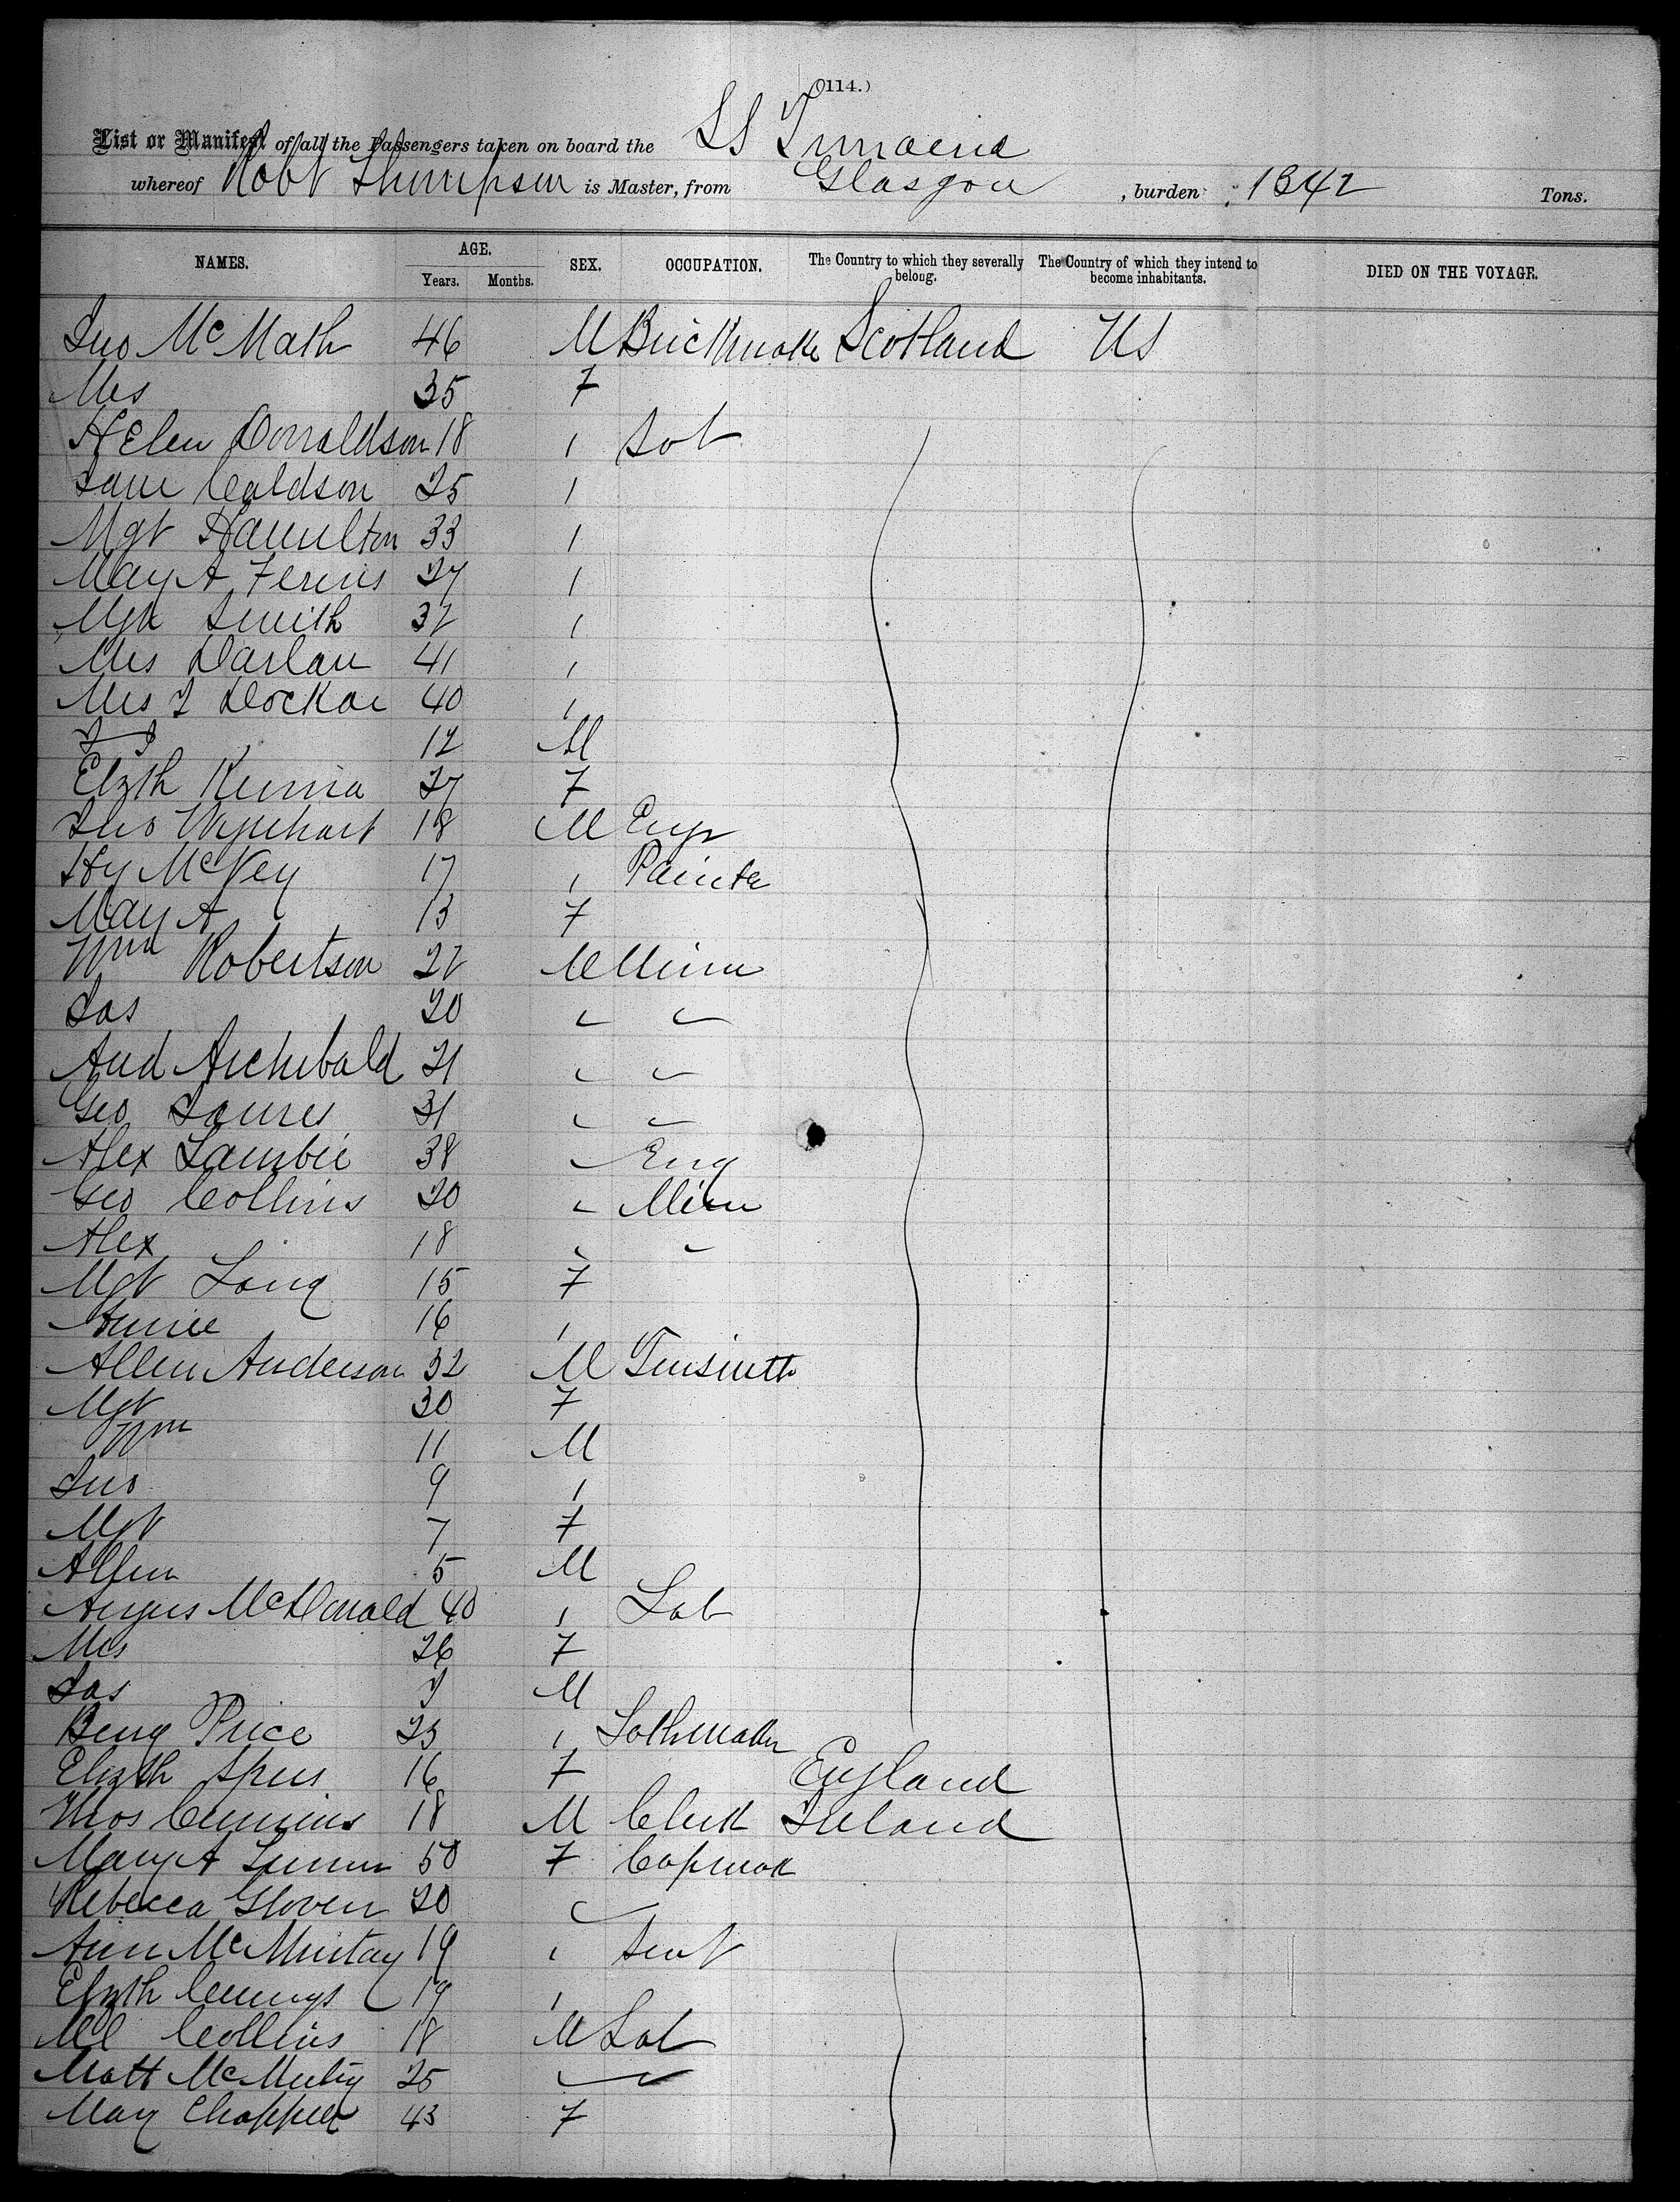 (114.)
List or Manifest of all the Passengers taken on board the SS
whereof Robt Thompson is Master, from Glasgow , burden 1342 Tons.
NAMES. AGE. Years. Months. SEX. OCCUPATION. The Country to which they severally belong. The Country of which they intend to become inhabitants. DIED ON THE VOYAGE.
Jno McMath 46 M Brickmake Scotland US
Mrs 35 F
Helen Donaldson 18 "
Jane 25 "
Mgt Hamilton 33 "
Mary A Ferris 27 "
Mgt Smith 32 "
Mrs Darlan 41 "
Mrs J 40 "
12 M
Elzth 27 F
18 M Engr
Hy McVey 17 " Painter
Mary A 13 F
Wm Robertson 22 M Miner
Jas 20 " "
And Archibald 21 " "
Geo James 31 " "
Alex Lambie 38 " Eng
Geo Collins 20 " Miner
Alex 18 " "
Mgt Long 15 F
Annie 16 "
Allen Anderson 32 M Tinsmith
Mgt 30 F
Wm 11 M
Jno 9 "
Mgt 7 F
Allen 5 M
Angus McDonald 40 " Lab
Mrs 26 F
Jas M
Benj Price 23 "
Elizth 16 F England
Thos Cummins 18 M Clerk Ireland
Mary A 50 F Capmak
Rebecca Glover 20 "
Ann McMurtay 19 " Servt
Elzth Cumings 19 "
Ml Collins 18 M Lab
Matt McMurtry 25 " "
Mary Chappell 43 F